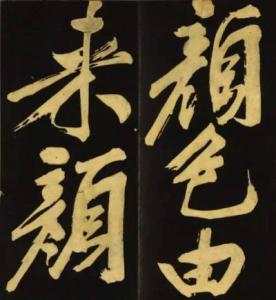 顔色由
来顔